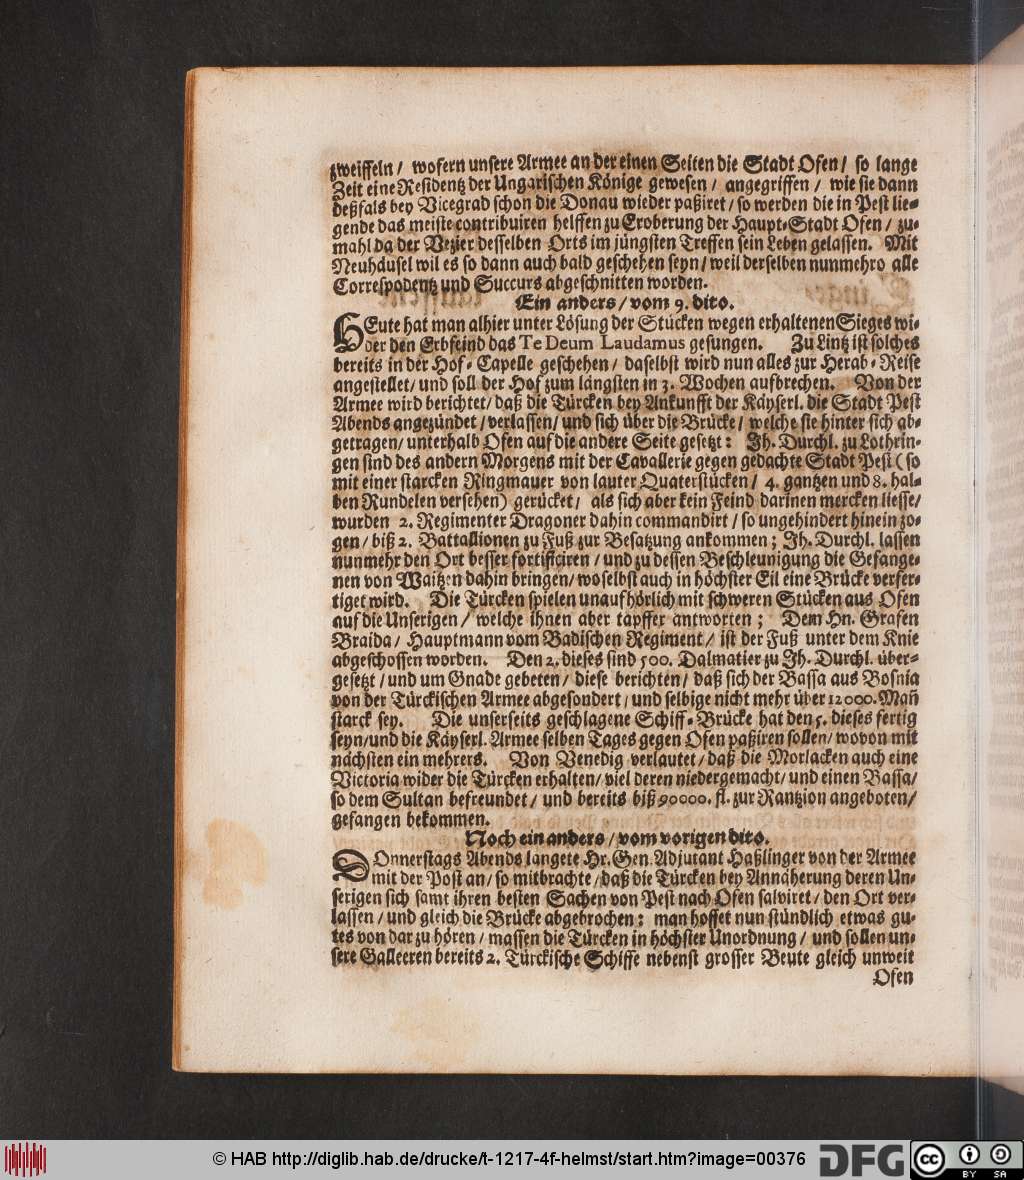 zweiffeln / wofern unsere Armee an der einen Seiten die Stadt Ofen / so lange
Zeit eine Residentz der Ungarischen Könige gewesen / angegriffen / wie sie dann
deßfals bey Vicegrad schon die Donau wieder paßiret / so werden die in Pest lie-
gende das meiste contribuiren helffen zu Eroberung der Haupt-Stadt Ofen / zu-
mahl da der Vezier desselben Orts im jüngsten Treffen sein Leben gelassen. Mit
Neuhäusel wil es so dann auch bald geschehen seyn / weil derselben nunmehro alle
Correspodentz und Succurs abgeschnitten worden.
Ein anders / vom 9. dito.
HEute hat man alhier unter Lösung der Stücken wegen erhaltenen Sieges wi-
der den Erbfeind das Te Deum Laudamus gesungen. Zu Lintz ist solches
bereits in der Hof-Capelle geschehen / daselbst wird nun alles zur Herab-Reise
angestellet / und soll der Hof zum längsten in 3. Wochen aufbrechen. Von der
Armee wird berichtet / daß die Türcken bey Ankunfft der Käyserl. die Stadt Pest
Abends angezündet / verlassen / und sich über die Brücke / welche sie hinter sich ab-
getragen / unterhalb Ofen auf die andere Seite gesetzt: Ih. Durchl. zu Lothrin-
gen sind des andern Morgens mit der Cavallerie gegen gedachte Stadt Pest (so
mit einer starcken Ringmauer von lauter Quaterstücken / 4. gantzen und 8. hal-
ben Rundelen versehen) gerücket / als sich aber kein Feind darinen mercken liesse /
wurden 2. Regimenter Dragoner dahin commandirt / so ungehindert hinein zo-
gen / biß 2. Battallionen zu Fuß zur Besatzung ankommen; Ih. Durchl. lassen
nunmehr den Ort besser fortificiren / und zu dessen Beschleunigung die Gefange-
nen von Waitzen dahin bringen / woselbst auch in höchster Eil eine Brücke verfer-
tiget wird. Die Türcken spielen unaufhörlich mit schweren Stücken aus Ofen
auf die Unserigen / welche ihnen aber tapffer antworten; Dem Hn. Grafen
Braida / Hauptmann vom Badischen Regiment / ist der Fuß unter dem Knie
abgeschossen worden. Den 2. dieses sind 500. Dalmatier zu Ih. Durchl. über-
gesetzt / und um Gnade gebeten / diese berichten / daß sich der Bassa aus Bosnia
von der Türckischen Armee abgesondert / und selbige nicht mehr über 12000. Man̄
starck sey. Die unserseits geschlagene Schiff-Brücke hat den 5. dieses fertig
seyn / und die Käyserl. Armee selben Tages gegen Ofen paßiren sollen / wovon mit
nächsten ein mehrers. Von Venedig verlautet / daß die Morlacken auch eine
Victoria wider die Türcken erhalten / viel deren niedergemacht / und einen Bassa /
so dem Sultan befreundet / und bereits biß 90000. fl. zur Rantzion angeboten /
gefangen bekommen.
Noch ein anders / vom vorigen dito.
DOnnerstags Abends langete Hr. Gen. Adjutant Haßlinger von der Armee
mit der Post an / so mitbrachte / daß die Türcken bey Annäherung deren Un-
serigen sich samt ihren besten Sachen von Pest nach Ofen salviret / den Ort ver-
lassen / und gleich die Brücke abgebrochen: man hoffet nun stündlich etwas gu-
tes von dar zu hören / massen die Türcken in höchster Unordnung / und sollen un-
sere Galleeren bereits 2. Türckische Schiffe nebenst grosser Beute gleich unweit
Ofen
© HAB http://diglib.hab.de/drucke/t-1217-4f-helmst/start.htm?image=00376
DFG
cc BY SA